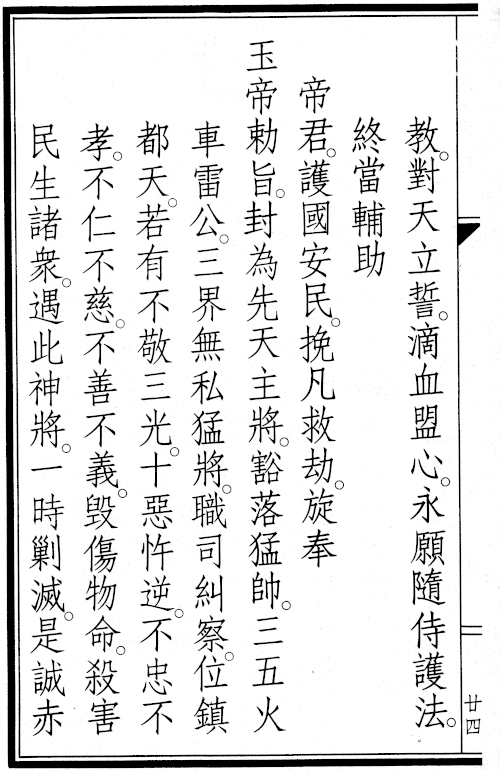 教。對天立誓。滴血盟心。永願隨侍護法。
終當輔助
帝君。護國安民。挽凡救劫。旋奉
玉帝勅旨。封為先天主將。豁落猛帥。三五火
車雷公。三界無私猛將。職司糾察。位鎮
都天。若有不敬三光。十惡忤逆。不忠不
孝。不仁不慈。不善不義。毀傷物命。殺害
民生諸衆。遇此神將。一時剿滅。是誠赤
廿四